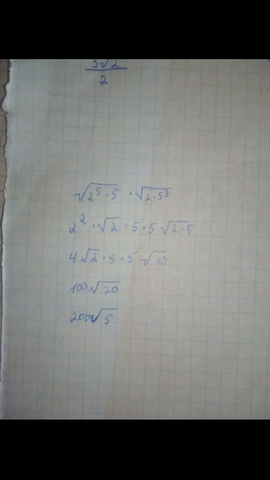 3√2
2
√2⁵·5 · √2·5⁵
2² · √2 · 5 · 5 √2·5
4√2 · 5 · 5 √10
100√20
200√5